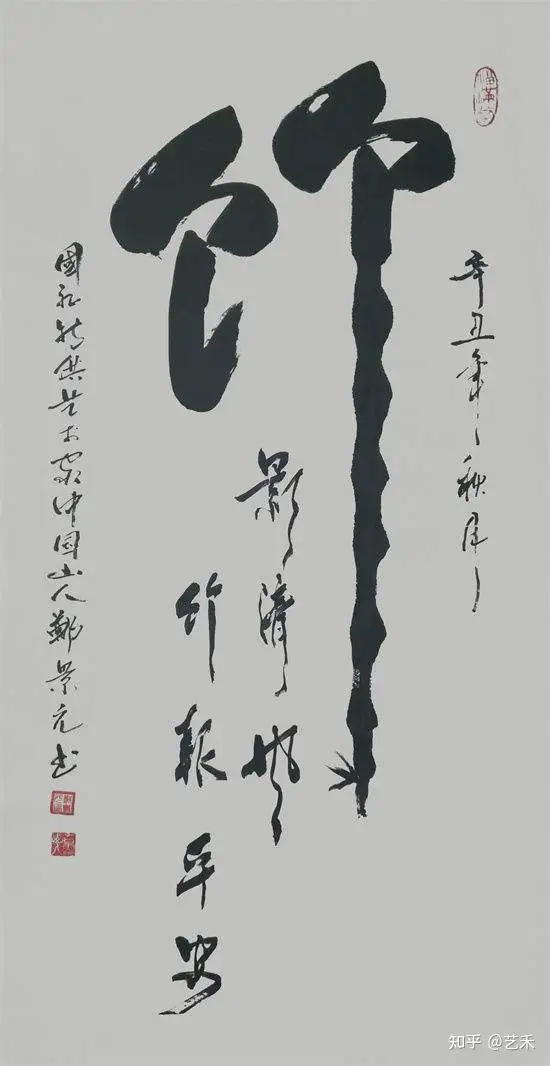 辛丑年秋月
竹
影清风
竹報平安
國礼特供艺术家中国山人鄭景元书
知乎 @艺禾